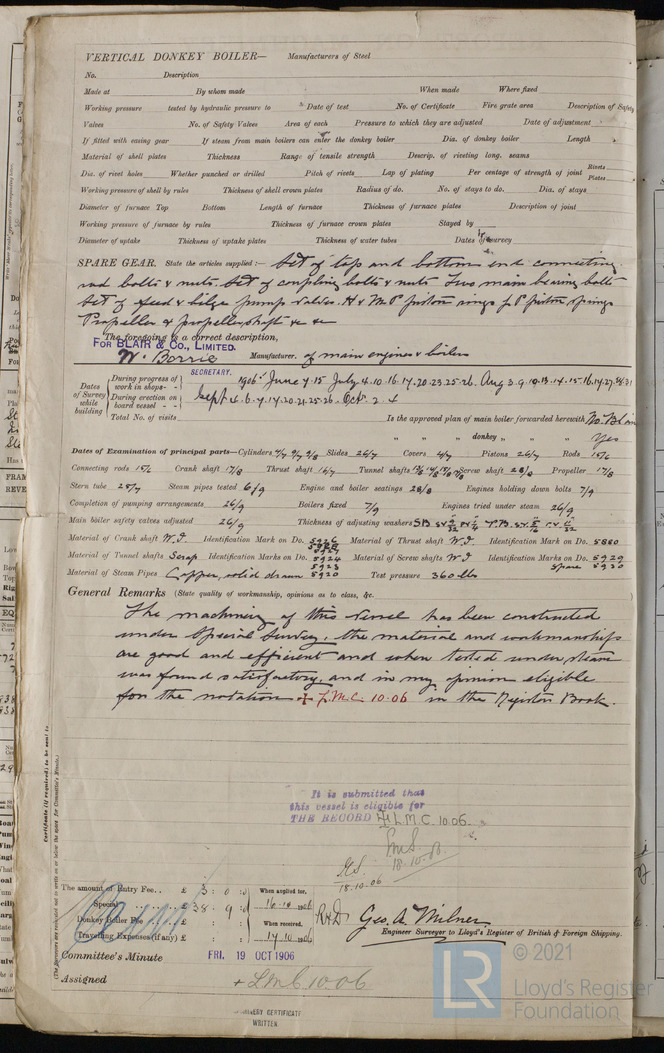 VERTICAL DONKEY BOILER— Manufacturers of Steel
No. Description
Made at By whom made When made Where fixed
Working pressure tested by hydraulic pressure to Date of test No. of Certificate Fire grate area Description of Safety
Valves No. of Safety Valves Area of each Pressure to which they are adjusted Date of adjustment
If fitted with easing gear If steam from main boilers can enter the donkey boiler Dia. of donkey boiler Length
Material of shell plates Thickness Range of tensile strength Descrip. of riveting long. seams
Dia. of rivet holes Whether punched or drilled Pitch of rivets Lap of plating Per centage of strength of joint Rivets Plates
Working pressure of shell by rules Thickness of shell crown plates Radius of do. No. of stays to do. Dia. of stays
Diameter of furnace Top Bottom Length of furnace Thickness of furnace plates Description of joint
Working pressure of furnace by rules Thickness of furnace crown plates Stayed by
Diameter of uptake Thickness of uptake plates Thickness of water tubes Dates of survey
SPARE GEAR. State the articles supplied:— Set of top and bottom end connecting
rod bolts & nuts. Set of coupling bolts & nuts. Two main bearing bolts
Set of feed & bilge pump valves. H & M P piston rings L P piston springs
Propeller & propeller shaft &c &c
The foregoing is a correct description,
FOR BLAIR & CO., LIMITED.
W. Borrie Manufacturer. of main engines & boilers
SECRETARY.
Dates of Survey while building
During progress of work in shops - - 1906 June 7. 15 July 4. 10. 16. 17. 20. 23. 25. 26. Aug 3. 9. 10. 13. 14. 15. 16. 17. 27.
During erection on board vessel - - Sept 4. 6. 7. 17. 20. 21. 25. 26. Oct 2. 4
Total No. of visits Is the approved plan of main boiler forwarded herewith No.
" " " donkey " " " Yes
Dates of Examination of principal parts—Cylinders Slides 26/7 Covers 4/7 Pistons 26/7 Rods 15/6
Connecting rods 15/6 Crank shaft 17/8 Thrust shaft 16/7 Tunnel shafts Screw shaft 28/8 Propeller 17/8
Stern tube 25/7 Steam pipes tested 6/9 Engine and boiler seatings 28/8 Engines holding down bolts 7/9
Completion of pumping arrangements 26/9 Boilers fixed 7/9 Engines tried under steam 26/9
Main boiler safety valves adjusted 26/9 Thickness of adjusting washers
Material of Crank shaft W.I Identification Mark on Do. Material of Thrust shaft W.I Identification Mark on Do. 5880
Material of Tunnel shafts Scrap Identification Marks on Do. 5924 Material of Screw shafts W.I Identification Marks on Do. 5929
Material of Steam Pipes Copper, solid drawn Test pressure 360 lbs Spare 5930
General Remarks (State quality of workmanship, opinions as to class, &c.
The machinery of this vessel has been constructed
under Special Survey, the material and workmanship
are good and efficient and when tested under steam
was found satisfactory, and in my opinion eligible
for the notation + L.M.C. 10.06 in the Register Book.
It is submitted that
this vessel is eligible for
THE RECORD + L.M.C. 10.06.
18.10.06
18.10.06
Certificate (if required) to be sent to
(The Surveyors are requested not to write on or below the space for Committee's Minute.)
The amount of Entry Fee . . £ 3 : 0 : When applied for,
Special . . . . . . . . £ 38 : 9 : 16.10.1906
Donkey Boiler Fee . . . . £ : : When received,
Travelling Expenses (if any) £ : : 17.10.1906
Geo. A. Milner
Engineer Surveyor to Lloyd's Register of British & Foreign Shipping.
Committee's Minute FRI. 19 OCT 1906
Assigned + LMC 10.06
CERTIFICATE
WRITTEN
© 2021
LR
Lloyd's Register
Foundation